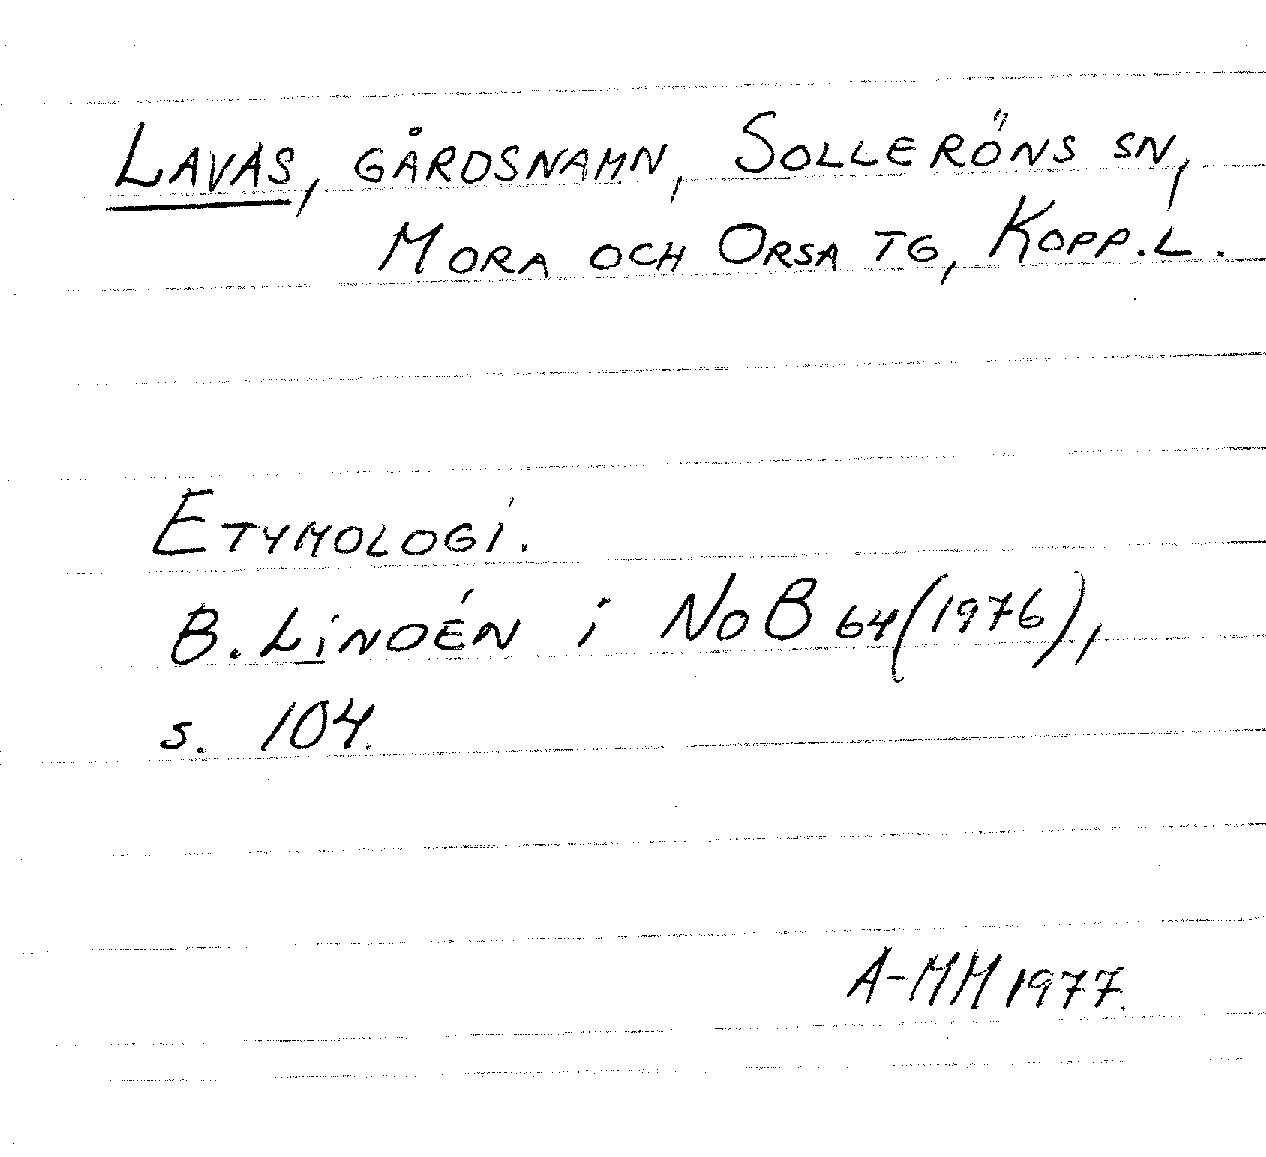 LAVAS, GÅRDSNAMN, SOLLERÖNS SN,
MORA OCH ORSA TG, KOPP.L.
ETYMOLOGI.
B. LINDÉN i NoB 64 (1976),
s. 104.
A-MH 1977.